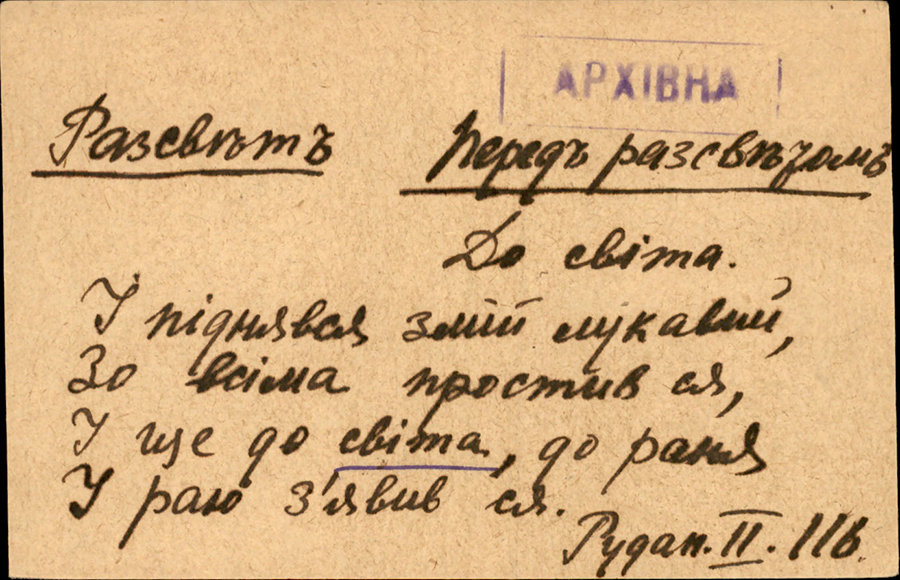 АРХІВНА
Разсвѣтъ
Передъ разсвѣтомъ
До світа.
І піднявся змій лукавий,
Зо всіма простив ся,
І ще до світа, до рання
У раю з'явив ся.
Рудан. II. 116.